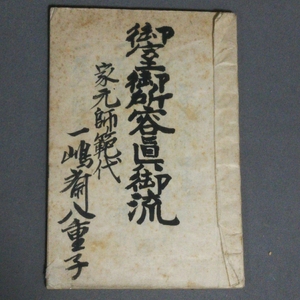 御室御所容真御流
家元師範代
一嶋斎八重子